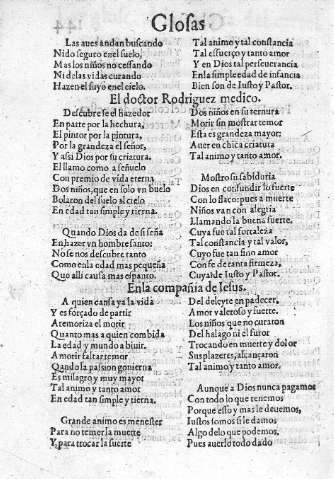 Glosas
Las aues andan buscando
Nido seguro en el suelo,
Mas los niños no cessando
Ni de las vidas curando
Hazen el suyo en el cielo.
Tal animo y tal constancia
Tal esfuerço y tanto amor
Y en Dios tal perseuerancia
En la simple edad de infancia
Bien son de Iusto y Pastor.
El doctor Rodriguez medico.
Descubrese el hazedor
En parte por la hechura,
El pintor por la pintura,
Por la grandeza el señor,
Y assi Dios por su criatura.
El llamo como a señuelo
Con premio de vida eterna
Dos niños, que en solo vn buelo
Bolaron del suelo al cielo
En edad tan simple y tierna.
Quando Dios da de si seña
En hazer vn hombre santo:
No se nos descubre tanto
Como en la edad mas pequeña
Que alli causa mas espanto.
Dos niños en su ternura
Morir sin mostrar temor
Esta es grandeza mayor:
A uer en chica criatura
Tal animo y tanto amor.
Mostro su sabiduria
Dios en confundir lo fuerte
Con lo flaco: pues a muerte
Niños van con alegria
Llamando la buena suerte.
Cuya fue tal fortaleza
Tal constancia y tal valor,
Cuyo fue tan fino amor
Con fe de tanta firmeza,
Cuya? de Iusto y Pastor.
En la compañia de Iesus.
A quien cansa ya la vida
Y es forçado de partir
Atemoriza el morir
Quanto mas a quien combida
La edad y mundo a biuir.
A morir saltar temor
Quando la passion gouierna
Es milagro y muy mayor
Tal animo y tanto amor
En edad tan simple y tierna.
Grande animo es menester
Para no temer la muerte
Y para trocar la suerte
Del deleyte en padecer,
Amor valeroso y fuerte.
Los niños que no curaron
Del halago ni el furor
Trocando en muerte y dolor
Sus plazeres, alcançaron
Tal animo y tanto amor.
Aunque a Dios nunca pagamos
Con todo lo que tenemos
Porque esso y mas le deuemos,
Iustos somos si le damos
Algo de lo que podemos,
Pues auerlo todo dado